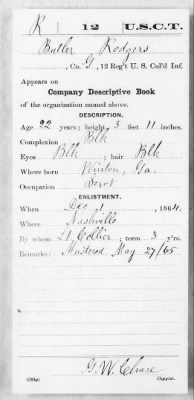 R 12 U.S.C.T.
Butler Rodgers
, Co. G, 12 Reg't U. S. Col'd Inf.
Appears on
Company Descriptive Book
of the organization named above.
DESCRIPTION.
Age 22 years; height 5 feet 11 inches.
Complexion Blk
Eyes Blk; hair Blk
Where born Ga.
Occupation
ENLISTMENT.
When Dec 1, 1864.
Where Nashville
By whom Lt Collier; term 3 y'rs.
Remarks: Mustered May 27/65
G. W. Chase
Copyist.